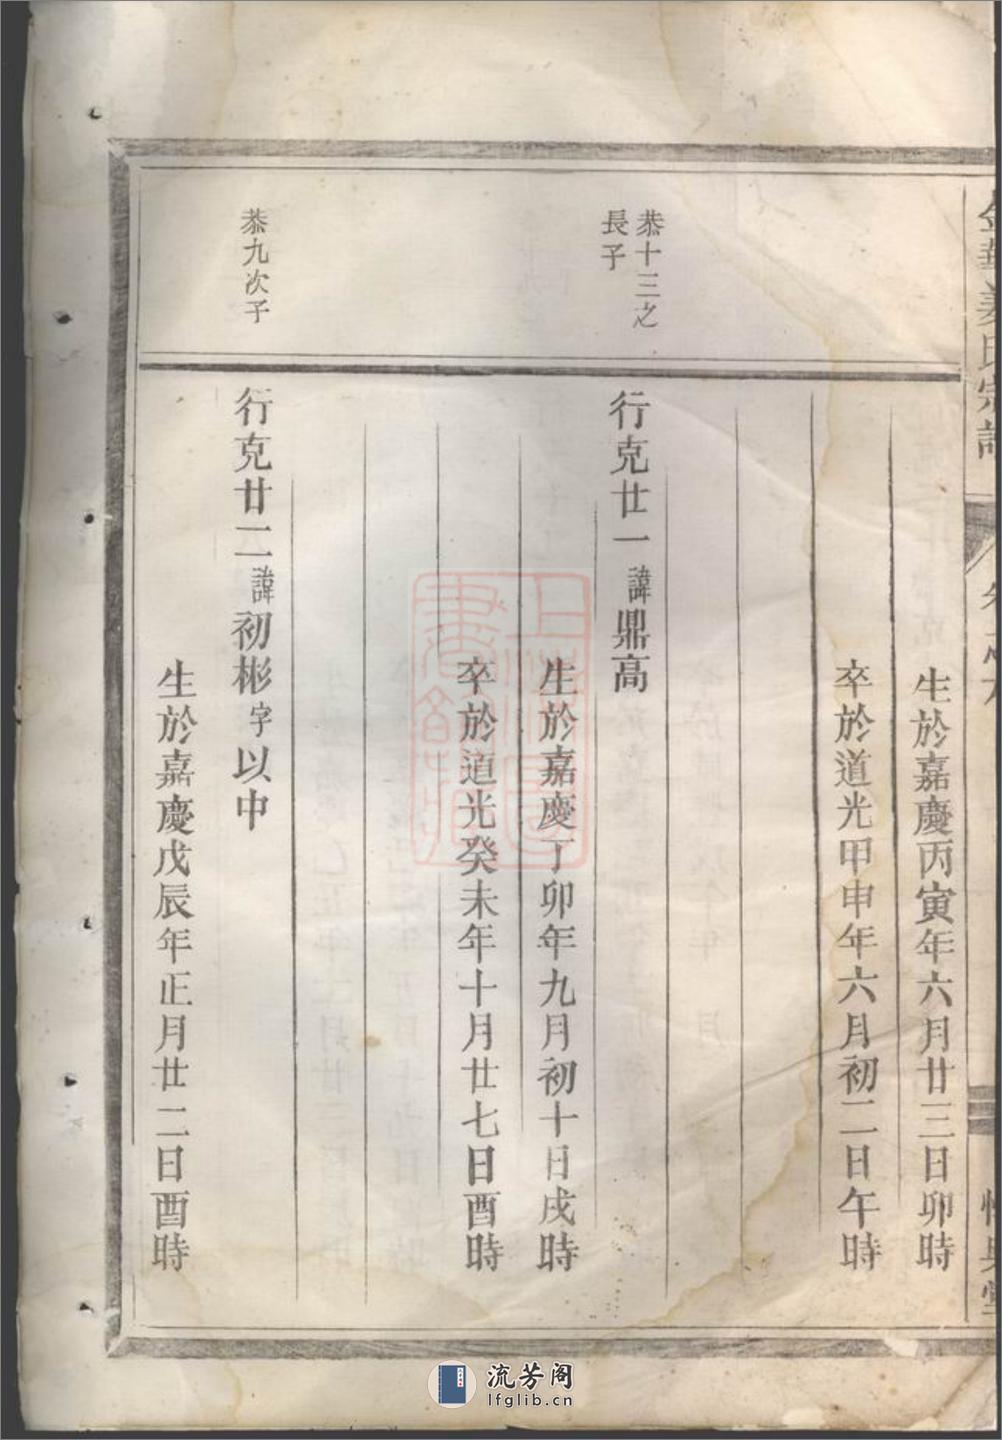 金華姜氏宗譜
生於嘉慶丙寅年六月廿三日卯時
卒於道光甲申年六月初二日午時
恭十三之
長子
行克廿一諱鼎高
生於嘉慶丁卯年九月初十日戌時
卒於道光癸未年十月廿七日酉時
恭九次子
行克廿二諱初彬字以中
生於嘉慶戊辰年正月廿二日酉時
流芳阁
lfglib.cn